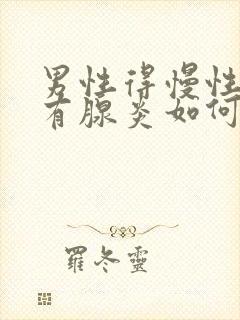 男性得慢性
有腺炎如何
羅冬靈